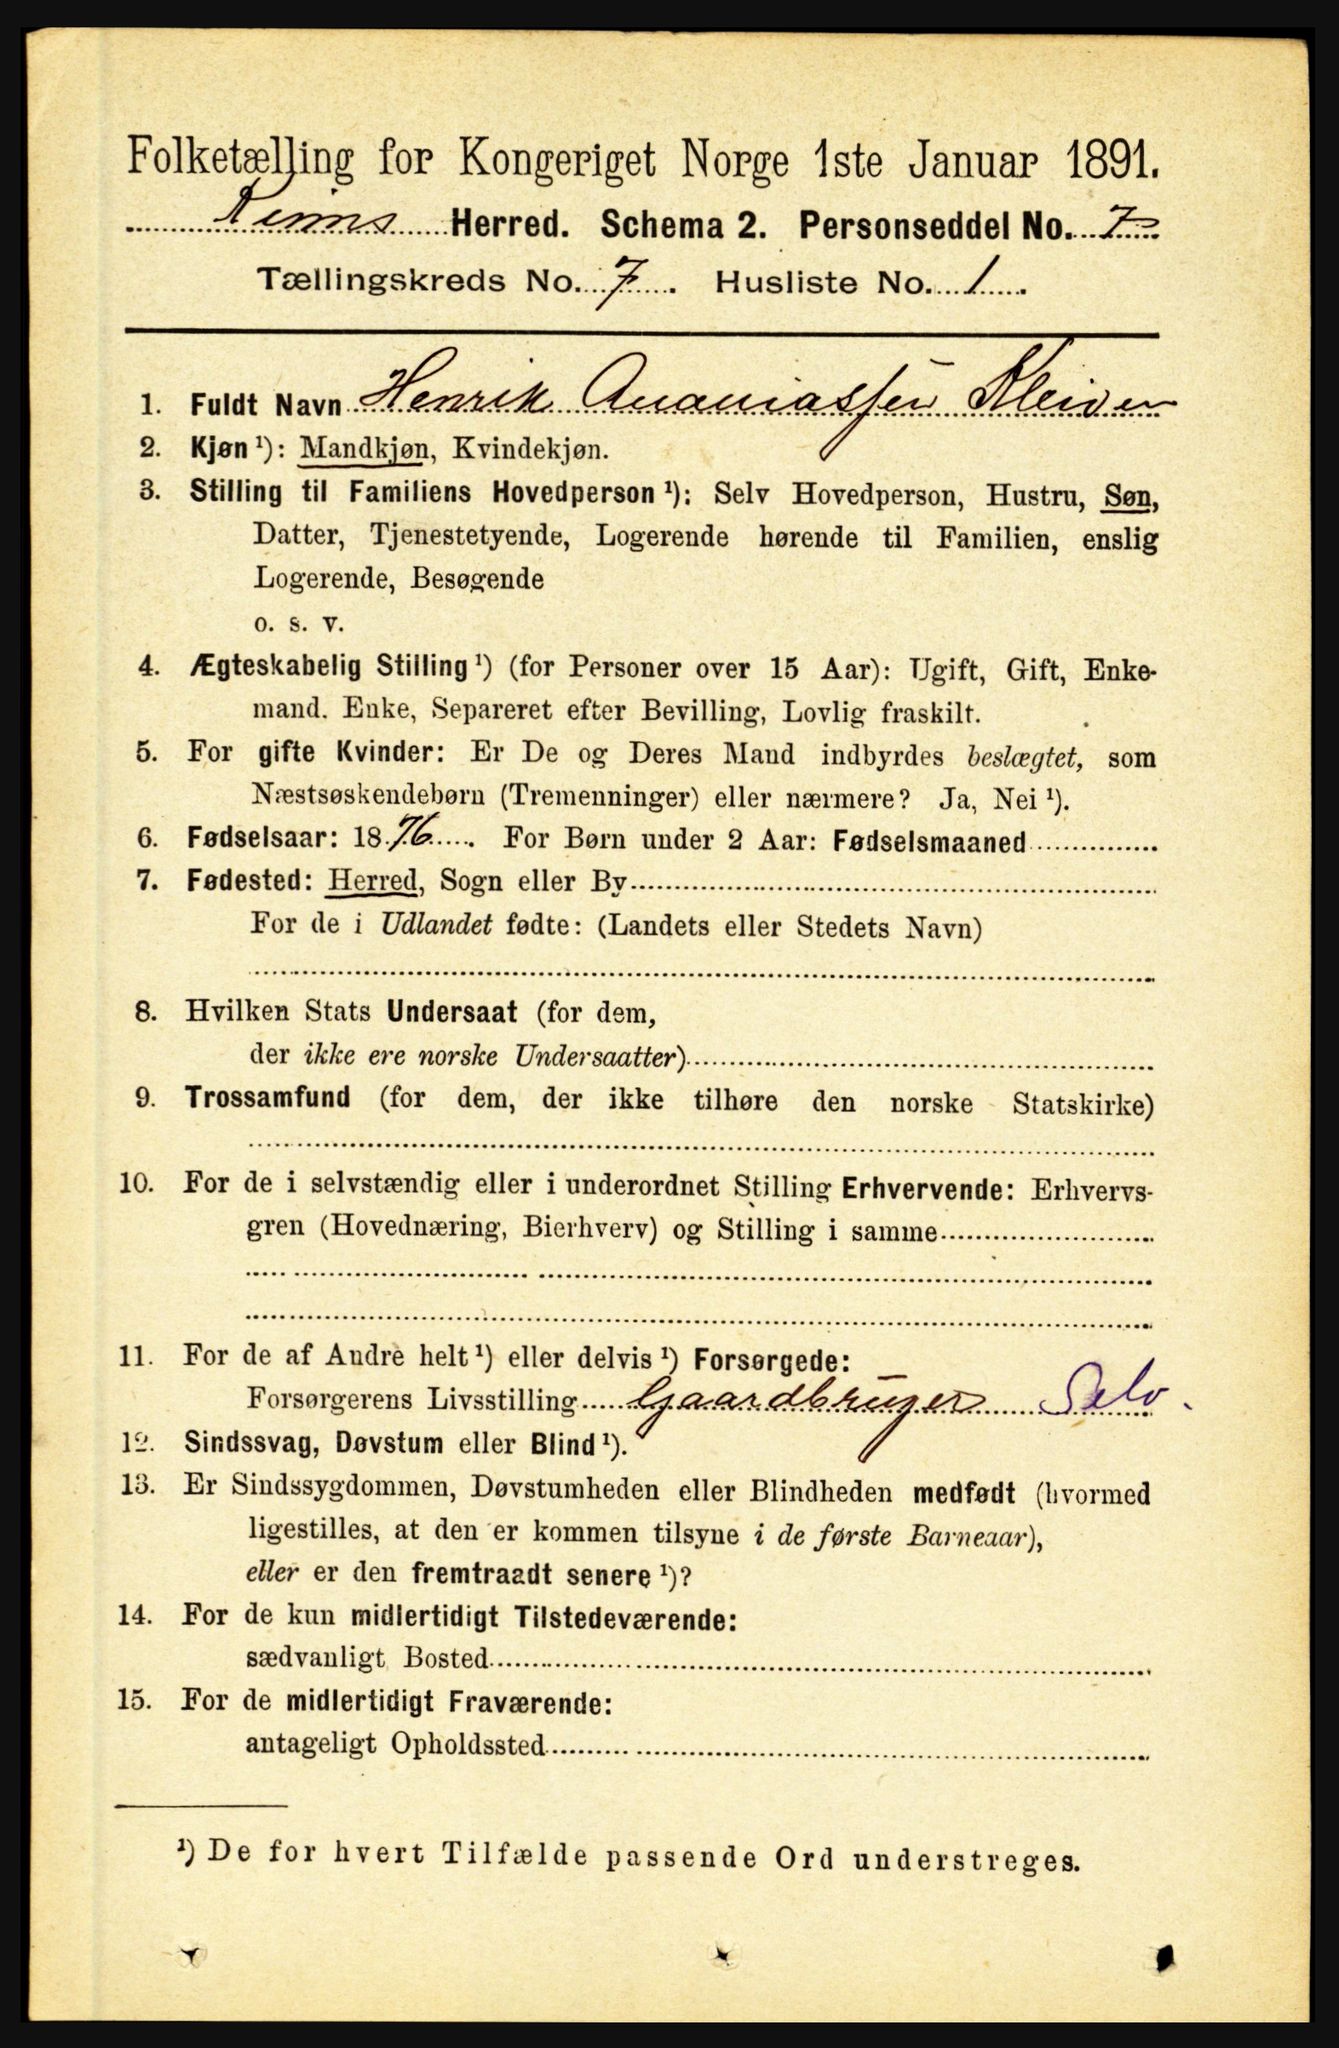 Folketælling for Kongeriget Norge 1ste Januar 1891.
Kinns Herred. Schema 2. Personseddel No. 7
Tællingskreds No. 7. Husliste No. 1.
1. Fuldt Navn Henrik Ananiassen Kleiven
2. Kjøn ¹): Mandkjøn, Kvindekjøn.
3. Stilling til Familiens Hovedperson ¹): Selv Hovedperson, Hustru, Søn,
Datter, Tjenestetyende, Logerende hørende til Familien, enslig
Logerende, Besøgende
o. s. v.
4. Ægteskabelig Stilling ¹) (for Personer over 15 Aar): Ugift, Gift, Enke-
mand. Enke, Separeret efter Bevilling, Lovlig fraskilt.
5. For gifte Kvinder: Er De og Deres Mand indbyrdes beslægtet, som
Næstsøskendebørn (Tremenninger) eller nærmere? Ja, Nei ¹).
6. Fødselsaar: 1876. For Børn under 2 Aar: Fødselsmaaned
7. Fødested: Herred, Sogn eller By
For de i Udlandet fødte: (Landets eller Stedets Navn)
8. Hvilken Stats Undersaat (for dem,
der ikke ere norske Undersaatter)
9. Trossamfund (for dem, der ikke tilhøre den norske Statskirke)
10. For de i selvstændig eller i underordnet Stilling Erhvervende: Erhvervs-
gren (Hovednæring, Bierhverv) og Stilling i samme
11. For de af Andre helt ¹) eller delvis ¹) Forsørgede:
Forsørgerens Livsstilling Gaardbruger Selv.
12. Sindssvag, Døvstum eller Blind ¹).
13. Er Sindssygdommen, Døvstumheden eller Blindheden medfødt (hvormed
ligestilles, at den er kommen tilsyne i de første Barneaar),
eller er den fremtraadt senere ¹)?
14. For de kun midlertidigt Tilstedeværende:
sædvanligt Bosted
15. For de midlertidigt Fraværende:
antageligt Opholdssted
¹) De for hvert Tilfælde passende Ord understreges.